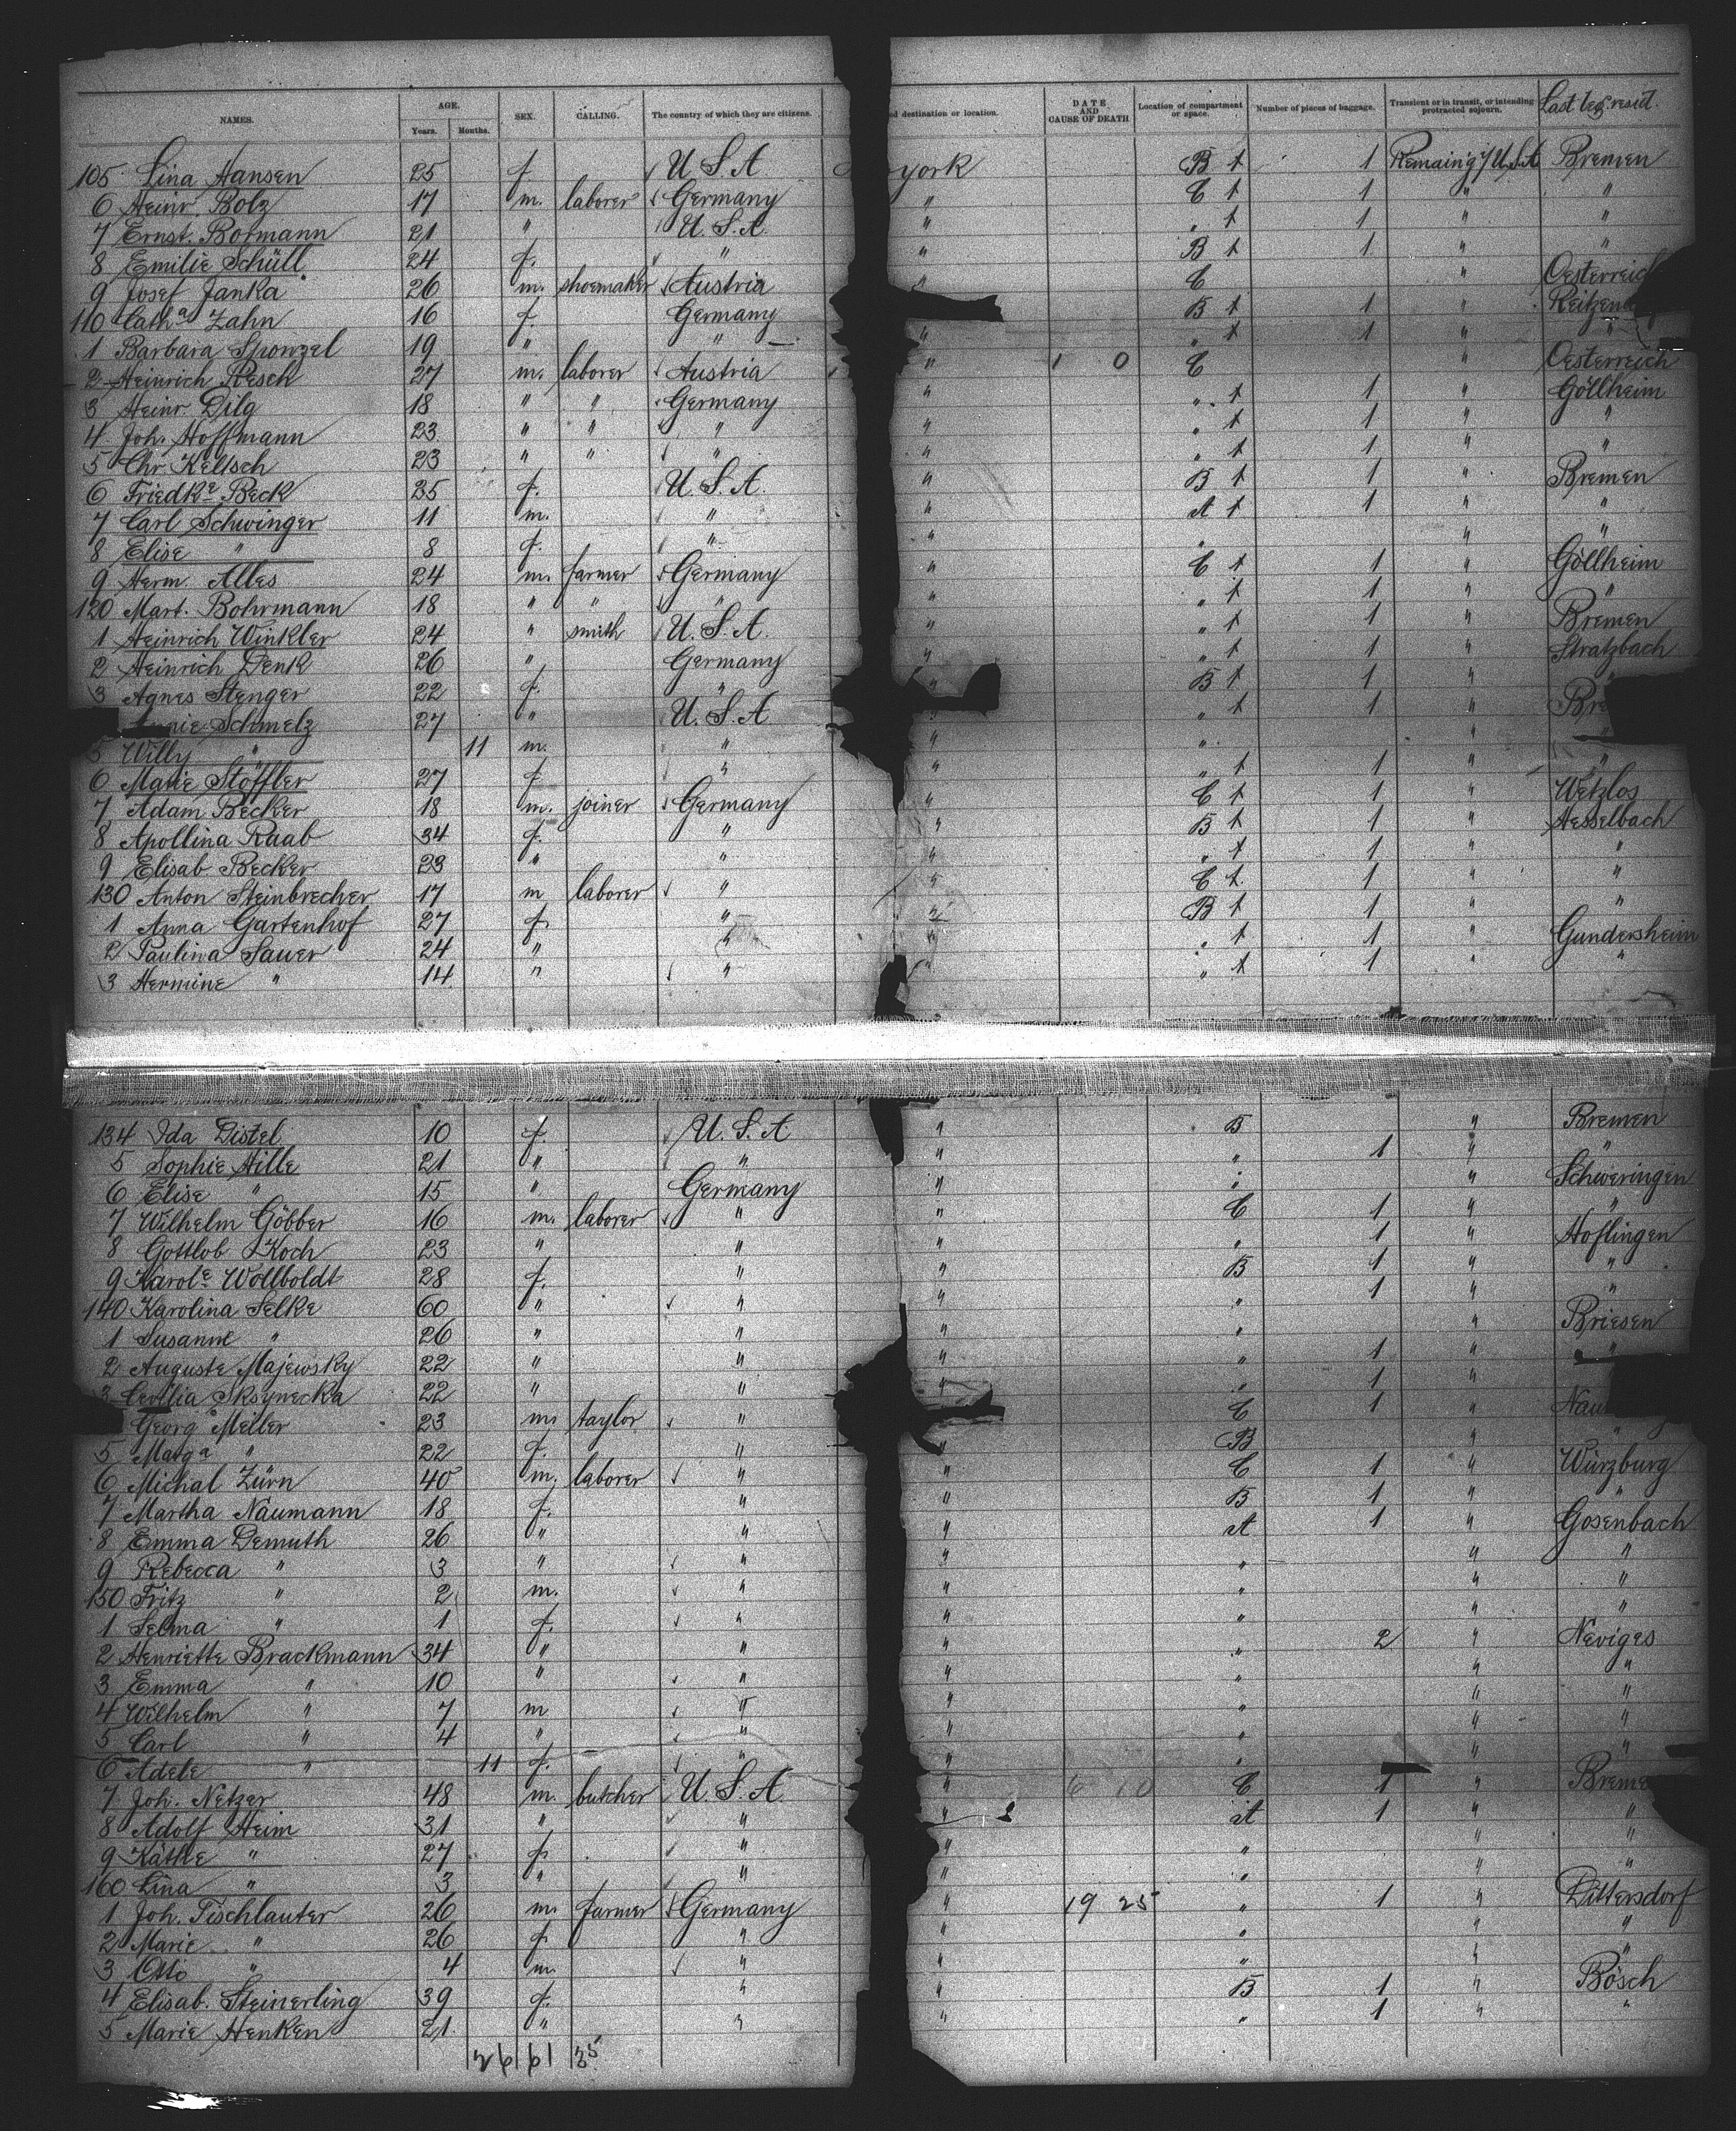 NAMES. AGE. Years. Months. SEX. CALLING. The country of which they are citizens. destination or location. DATE AND CAUSE OF DEATH Location of compartment or space. Number of pieces of baggage. Transient or in transit, or intending protracted sojourn. Last leg. resid.
105 Lina Hansen 25 f. U. S. A. york B 1 1 Bremen
6 Heinr. Bolz 17 m. laborer Germany " C 1 1 " "
7 Ernst. Bormann 21 " U. S. A. " " 1 1 " "
8 Emilie Schüll 24 f. " " B 1 1 " "
9 Josef Janka 26 m. shoemaker Austria " C " Oesterreich
110 Cath.a Zahn 16 f. Germany B 1 1 "
1 Barbara Sponzel 19 " " " " 1 1 " "
2 Heinrich Resch 27 m. laborer Austria " C " Oesterreich
3 Heinr. Dilg 18 " " Germany " " 1 1 " Göllheim
4 Joh. Hoffmann 23 " " " " " 1 1 " "
5 Chr. Keltsch 23 " " " " " 1 1 " "
6 Friedke Beck 35 f. U. S. A. " B 1 1 " Bremen
7 Carl Schwinger 11 m. " " A 1 1 " "
8 Elise " 8 f. " " " " "
9 Herm. Alles 24 m. farmer Germany " C 1 1 " Göllheim
120 Mart. Bohrmann 18 " " " " " 1 1 " "
1 Heinrich Winkler 24 " smith U. S. A. " " 1 1 " Bremen
2 Heinrich Denk 26 " Germany " " 1 1 " Stratzbach
3 Agnes Stenger 22 f. " " B 1 1 " "
Schmelz 27 " U. S. A. " " 1 1 "
5 Willy " 11 m. " " " " "
6 Marie Stöffler 27 f. " " " 1 1 " "
7 Adam Becker 18 m. joiner Germany " C 1 1 " Wetzlos
8 Apollina Raab 34 f. " " B 1 1 " Hesselbach
9 Elisab. Becker 23 " " " " 1 1 " "
130 Anton Steinbrecher 17 m laborer " " C 1 1 " "
1 Anna Gartenhof 27 f. " " B 1 1 " "
2 Paulina Sauer 24 " " " " 1 1 " Gundersheim
3 Hermine " 14 " " " " 1 1 " "
134 Ida Distel 10 f. U. S. A. " B " Bremen
5 Sophie Hille 21 " " " " 1 " "
6 Elise " 15 " Germany " " " Schweringen
7 Wilhelm Göbber 16 m. laborer " " C 1 " "
8 Gottlob Koch 23 " " " " 1 " Hoflingen
9 Karole Wollboldt 28 f. " " B 1 " "
140 Karolina Selke 60 " " " " 1 " "
1 Susanne " 26 " " " " " Briesen
2 Auguste Majewsky 22 " " " " 1 " "
3 Cecilia Sksynecka 22 " " " " 1 "
Georg Meller 23 m. taylor " " C 1 "
5 Marga " 22 f. " " B " "
6 Michal Zürn 40 m. laborer " " C 1 " Würzburg
7 Martha Naumann 18 f. " " B 1 " "
8 Emma Demuth 26 " " " A 1 " Gosenbach
9 Rebecca " 3 " " " " " "
150 Fritz " 2 m. " " " " "
1 Selma " 1 f. " " " " "
2 Henriette Brackmann 34 " " " " 2 " Neviges
3 Emma " 10 " " " " " "
4 Wilhelm " 7 m " " " " "
5 Carl " 4 " " " " " "
6 Adele " 11 f. " " " " "
7 Joh. Netzer 48 m. butcher U. S. A. " 6 10 C 1 " Breme
8 Adolf Heim 31 " " " A 1 " "
9 Käthe " 27 f. " " " " "
160 Lina " 3 " " " " " "
1 Joh. Tischlauter 26 m. farmer Germany " 19 25 " 1 " Dittersdorf
2 Marie " 26 f. " " " " "
3 Otto " 4 m. " " " " "
4 Elisab. Steinerling 39 f. " " B 1 " Bösch
5 Marie Henken 21 " " " " 1 " "
26 61 35